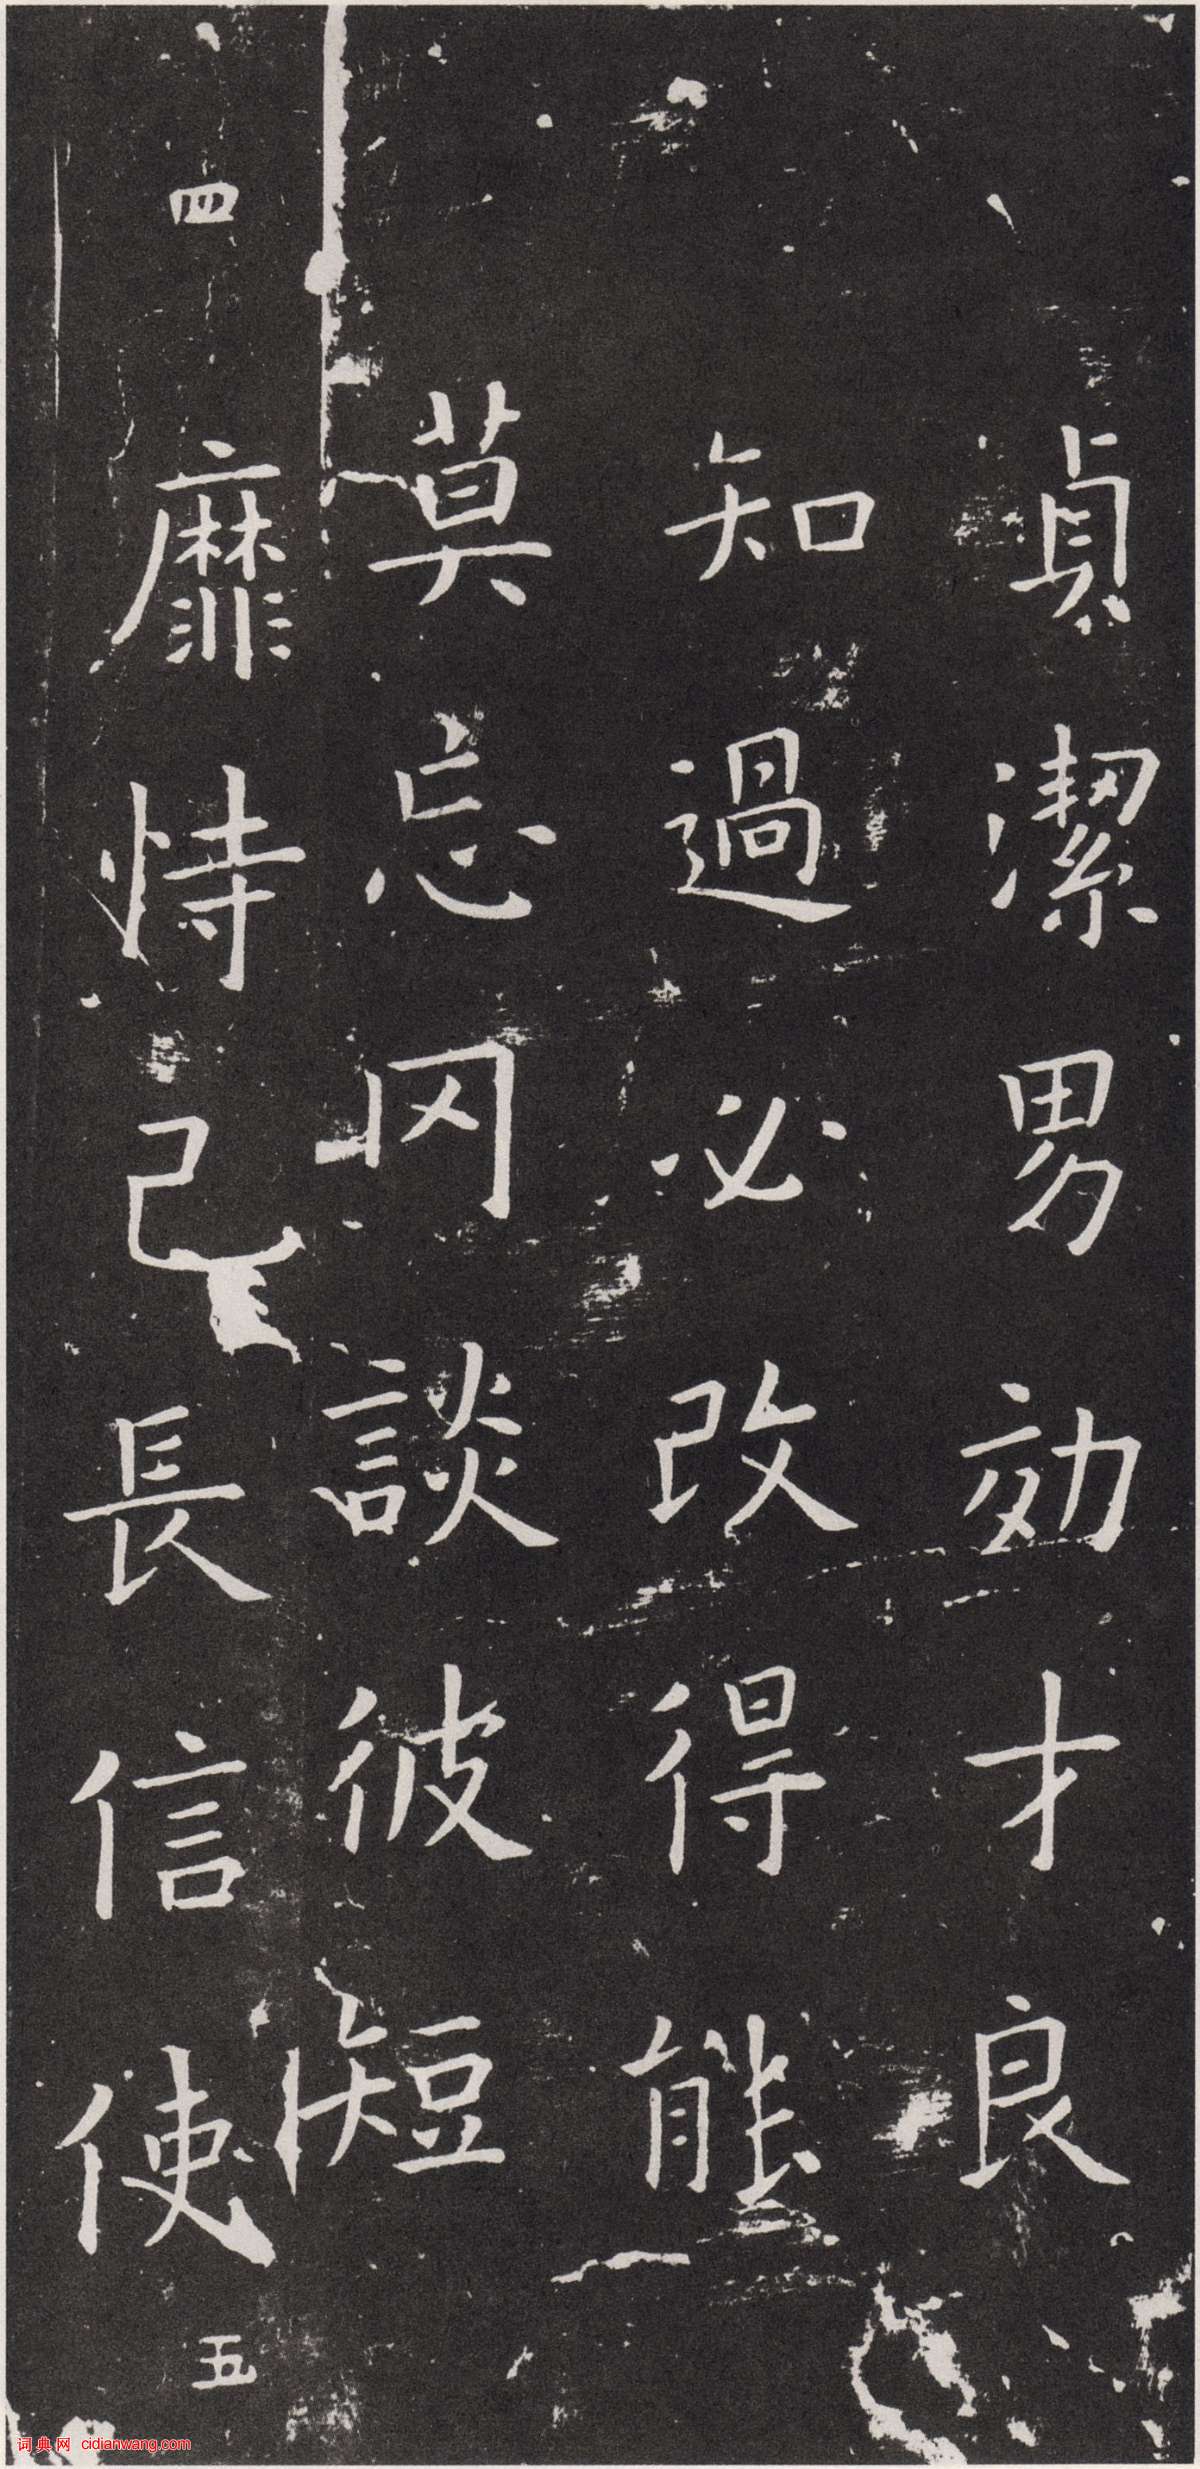 貞潔男効才良
知過必改得能
莫忘罔談彼短
四
靡恃己長信使
五
词典网 cidianwang.com